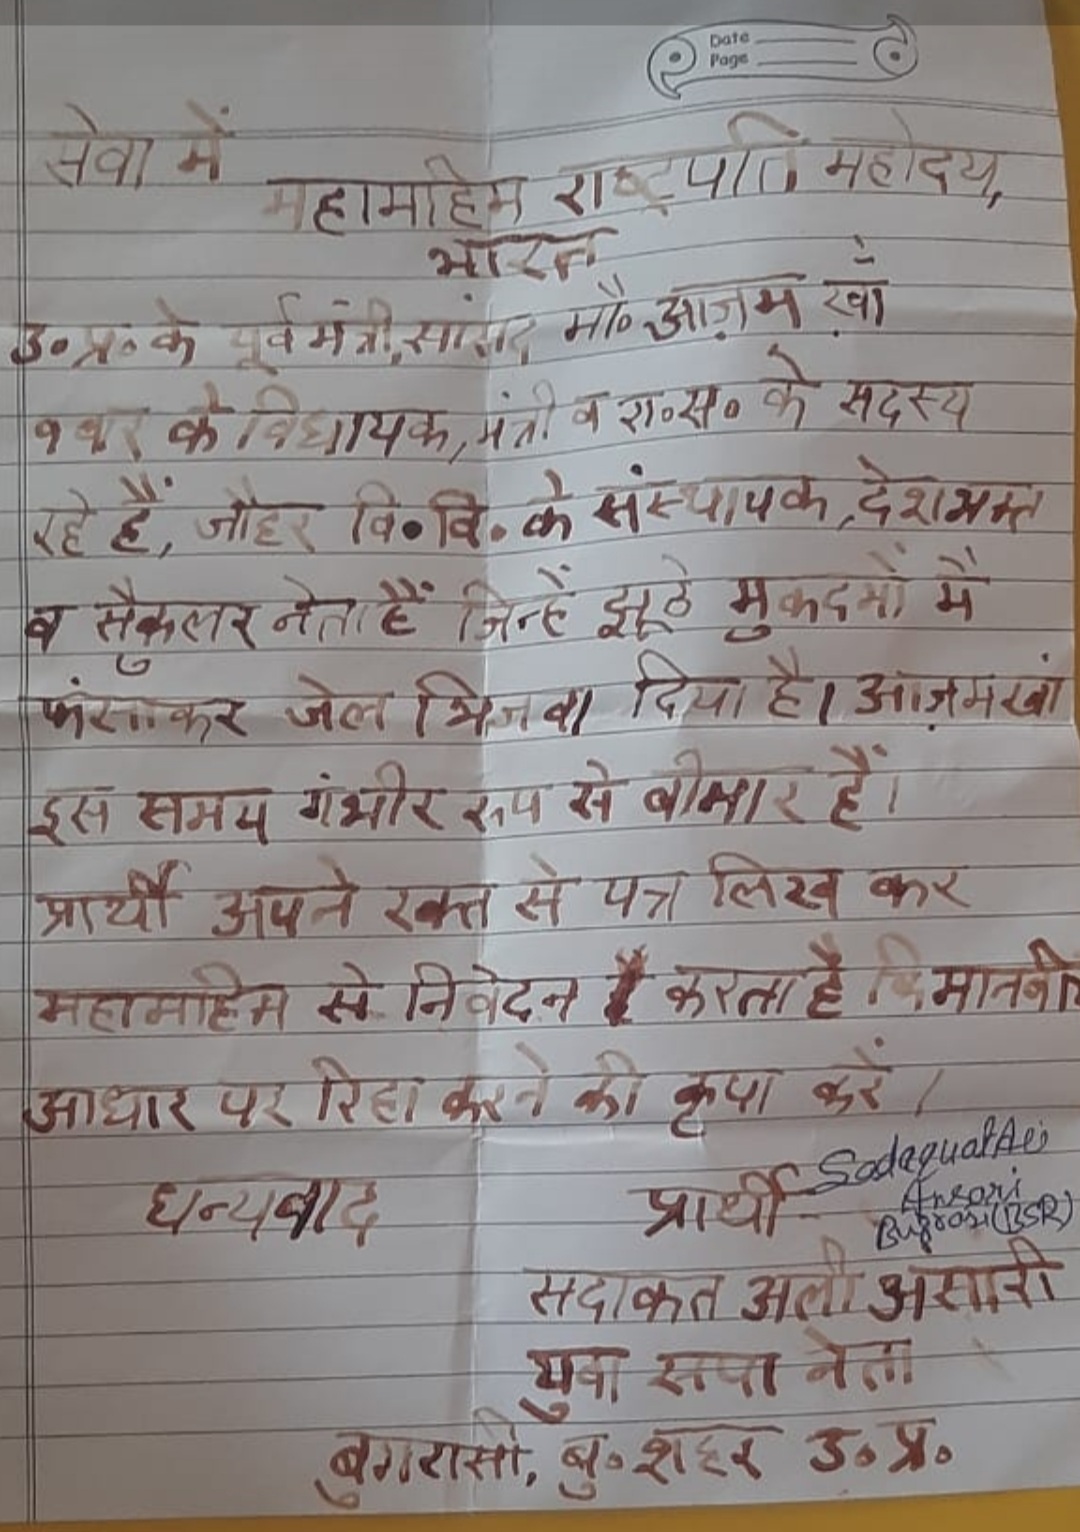 Date
Page
सेवा में
महामहिम राष्ट्रपति महोदय,
भारत
उ॰ प्र॰ के पूर्व मंत्री, सांसद मौ॰ आज़म ख़ाँ
९ बार के विधायक, मंत्री व रा॰स॰ के सदस्य
रहे हैं, जौहर वि॰ वि॰ के संस्थापक, देशभक्त
व सैकुलर नेता हैं जिन्हें झूठे मुकदमों में
फंसाकर जेल भिजवा दिया है। आज़मखां
इस समय गंभीर रूप से बीमार हैं।
प्रार्थी अपने रक्त से पत्र लिख कर
महामहिम से निवेदन करता है कि मानवीय
आधार पर रिहा करने की कृपा करें।
धन्यवाद प्रार्थी- Sadaquat Ali
Ansari
Bugrasi (BSR)
सदाकत अली अंसारी
युवा सपा नेता
बुगरासी, बु॰शहर उ॰ प्र॰